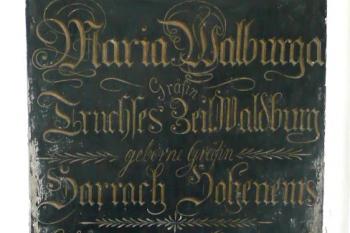 Maria Walburga
Gräfin
Truchses Zeil Waldburg
geborne Gräfin
Harrach Hohenems